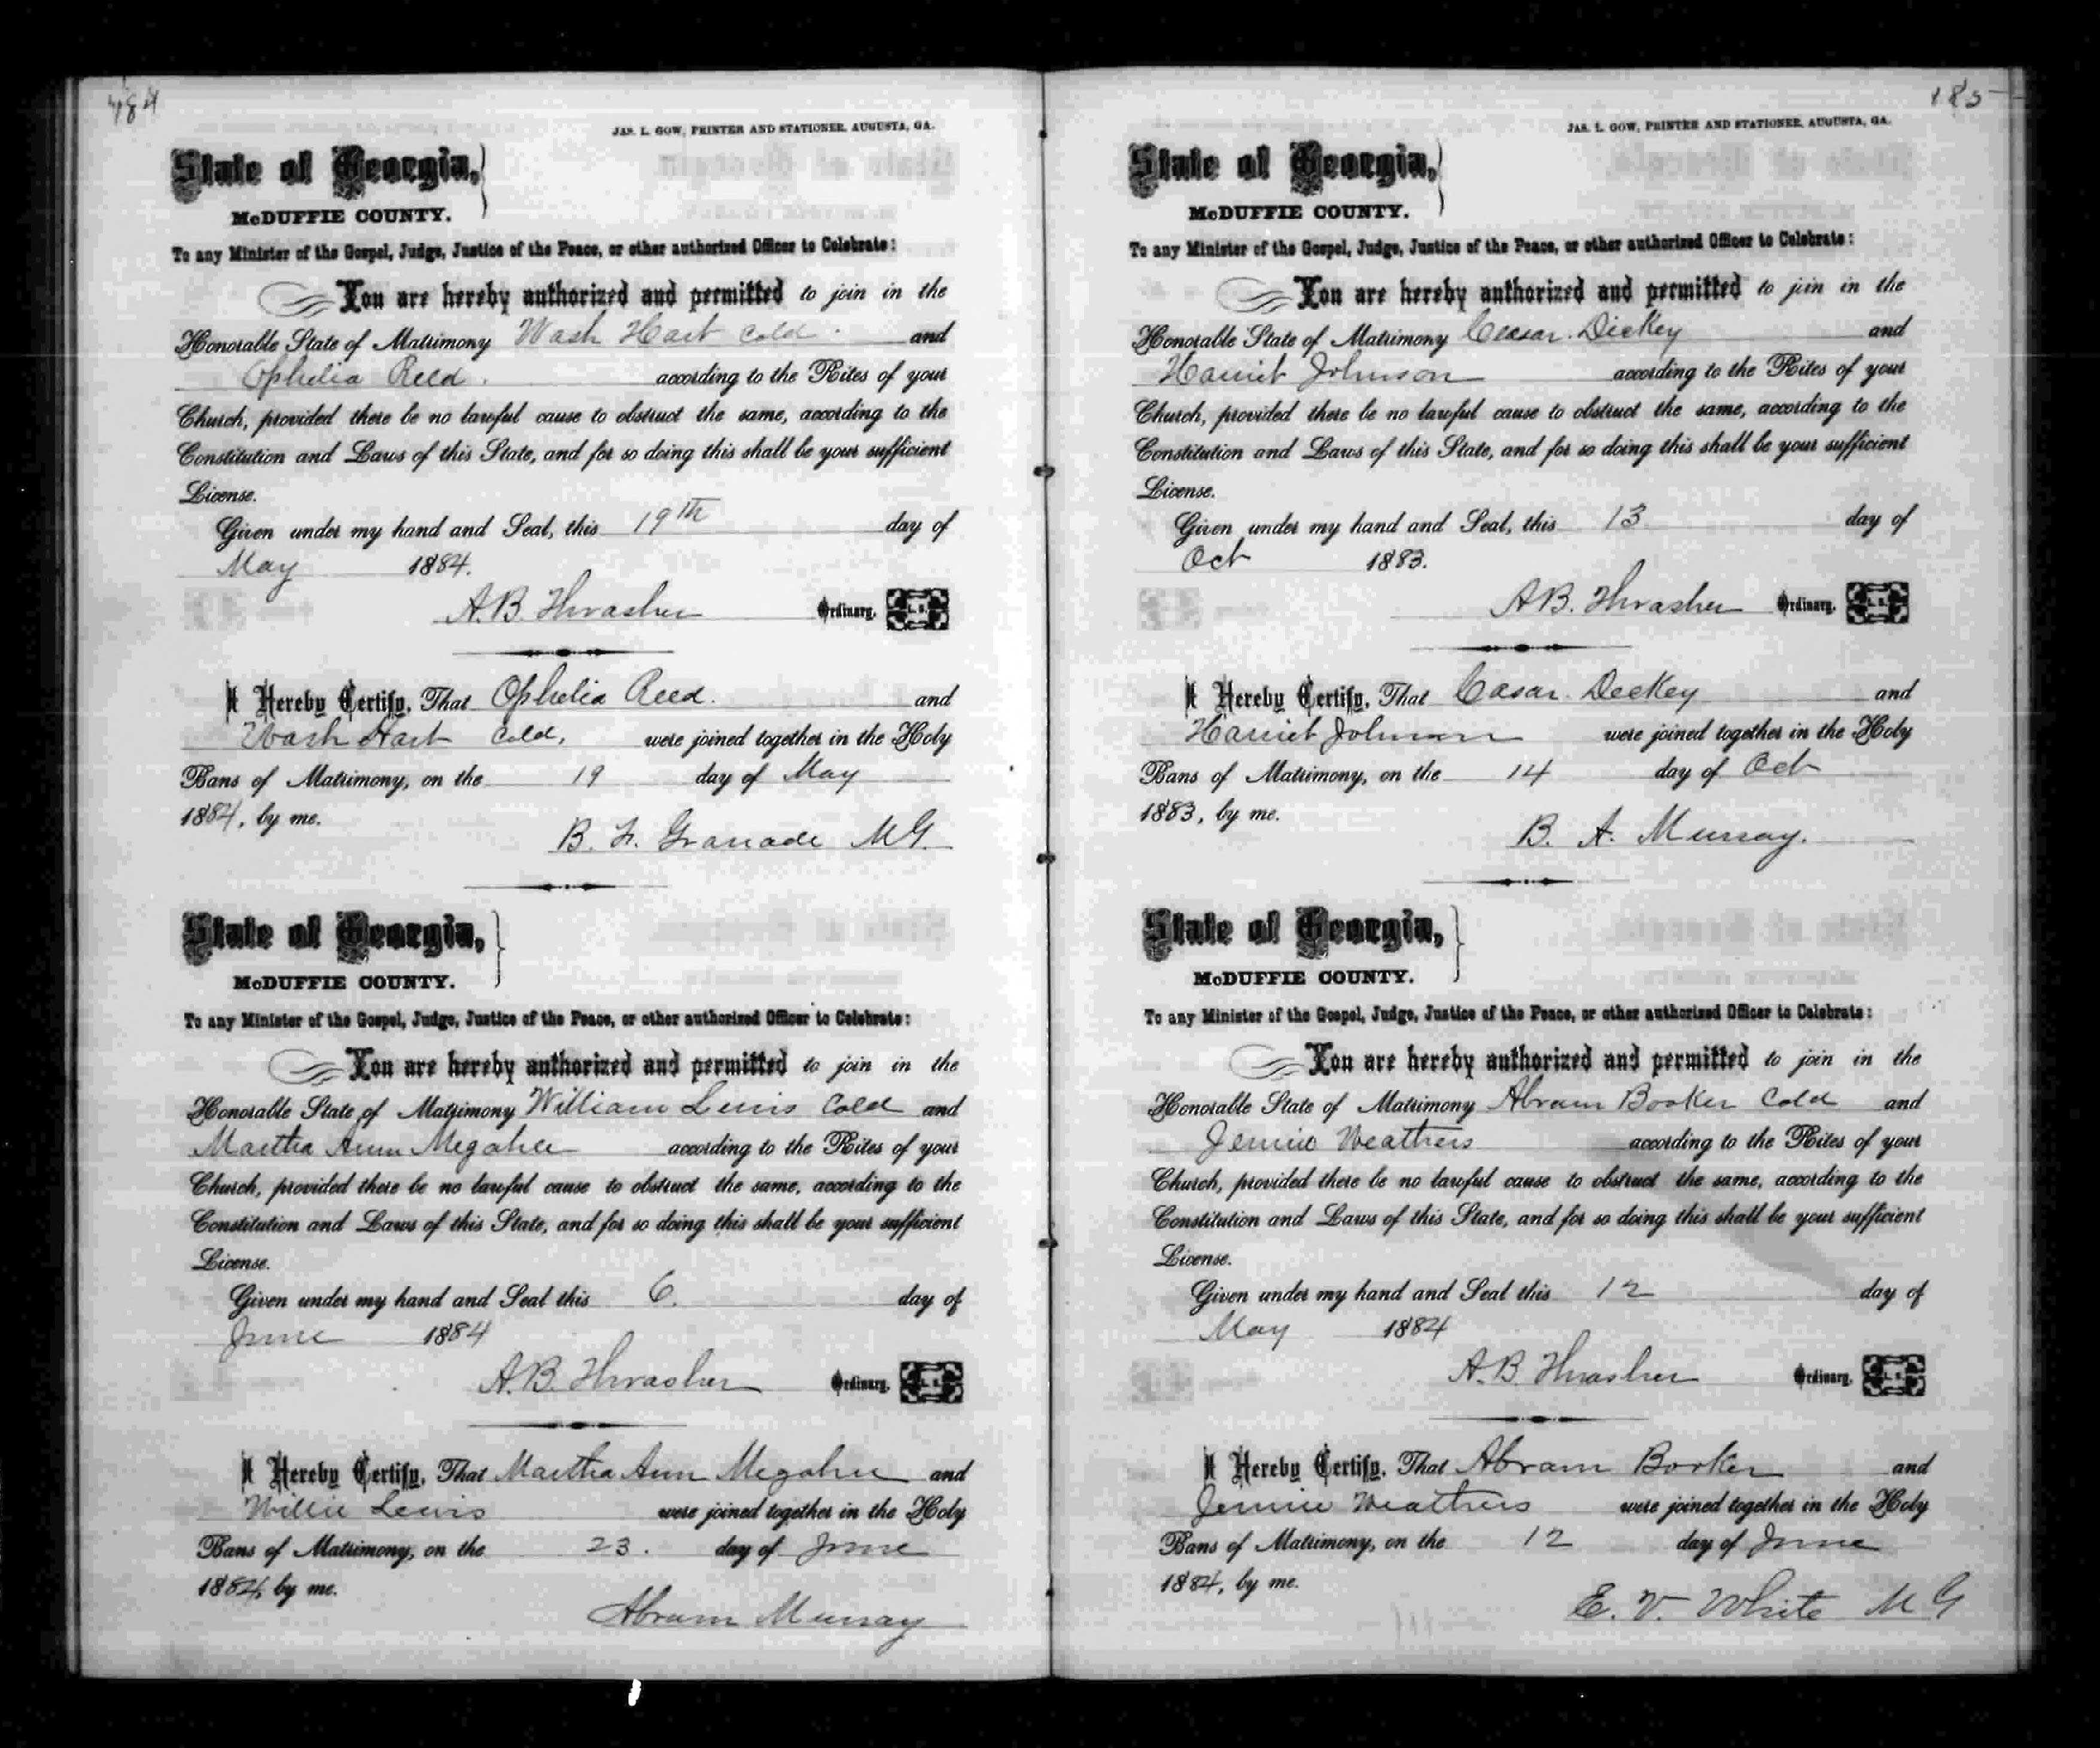 184
JAS. L. GOW, PRINTER AND STATIONER, AUGUSTA, GA.
State of Georgia,
McDUFFIE COUNTY.
To any Minister of the Gospel, Judge, Justice of the Peace, or other authorized Officer to Celebrate:
You are hereby authorized and permitted to join in the
Honorable State of Matrimony Wash Hart Cold and
Ophelia Reed. according to the Rites of your
Church, provided there be no lawful cause to obstruct the same, according to the
Constitution and Laws of this State, and for so doing this shall be your sufficient
License.
Given under my hand and Seal, this 19th day of
May 1884.
A.B. Thrasher Ordinary. L. S.
I Hereby Certify, That Ophelia Reed. and
Wash Hart Cold, were joined together in the Holy
Bans of Matrimony, on the 19 day of May
1884, by me.
B. F. Granade MG.
State of Georgia,
McDUFFIE COUNTY.
To any Minister of the Gospel, Judge, Justice of the Peace, or other authorized Officer to Celebrate:
You are hereby authorized and permitted to join in the
Honorable State of Matrimony William Lewis Cold and
Martha Ann Megahee according to the Rites of your
Church, provided there be no lawful cause to obstruct the same, according to the
Constitution and Laws of this State, and for so doing this shall be your sufficient
License.
Given under my hand and Seal this 6. day of
June 1884
A.B. Thrasher Ordinary. L. S.
I Hereby Certify, That Martha Ann Megahee and
Willie Lewis were joined together in the Holy
Bans of Matrimony, on the 23. day of June
1884, by me.
Abram Murray
185
JAS. L. GOW, PRINTER AND STATIONER, AUGUSTA, GA.
State of Georgia,
McDUFFIE COUNTY.
To any Minister of the Gospel, Judge, Justice of the Peace, or other authorized Officer to Celebrate:
You are hereby authorized and permitted to join in the
Honorable State of Matrimony Ceasar Dickey and
Harriet Johnson according to the Rites of your
Church, provided there be no lawful cause to obstruct the same, according to the
Constitution and Laws of this State, and for so doing this shall be your sufficient
License.
Given under my hand and Seal, this 13 day of
Oct 1883.
A.B. Thrasher Ordinary. L. S.
I Hereby Certify, That Casar Deckey and
Harriet Johnson were joined together in the Holy
Bans of Matrimony, on the 14 day of Oct
1883, by me.
B. A. Murray.
State of Georgia,
McDUFFIE COUNTY.
To any Minister of the Gospel, Judge, Justice of the Peace, or other authorized Officer to Celebrate:
You are hereby authorized and permitted to join in the
Honorable State of Matrimony Abram Booker Cold and
Jennie Weathers according to the Rites of your
Church, provided there be no lawful cause to obstruct the same, according to the
Constitution and Laws of this State, and for so doing this shall be your sufficient
License.
Given under my hand and Seal this 12 day of
May 1884
A.B. Thrasher Ordinary. L. S.
I Hereby Certify, That Abram Booker and
Jennie Weathers were joined together in the Holy
Bans of Matrimony, on the 12 day of June
1884, by me.
E. V. White MG